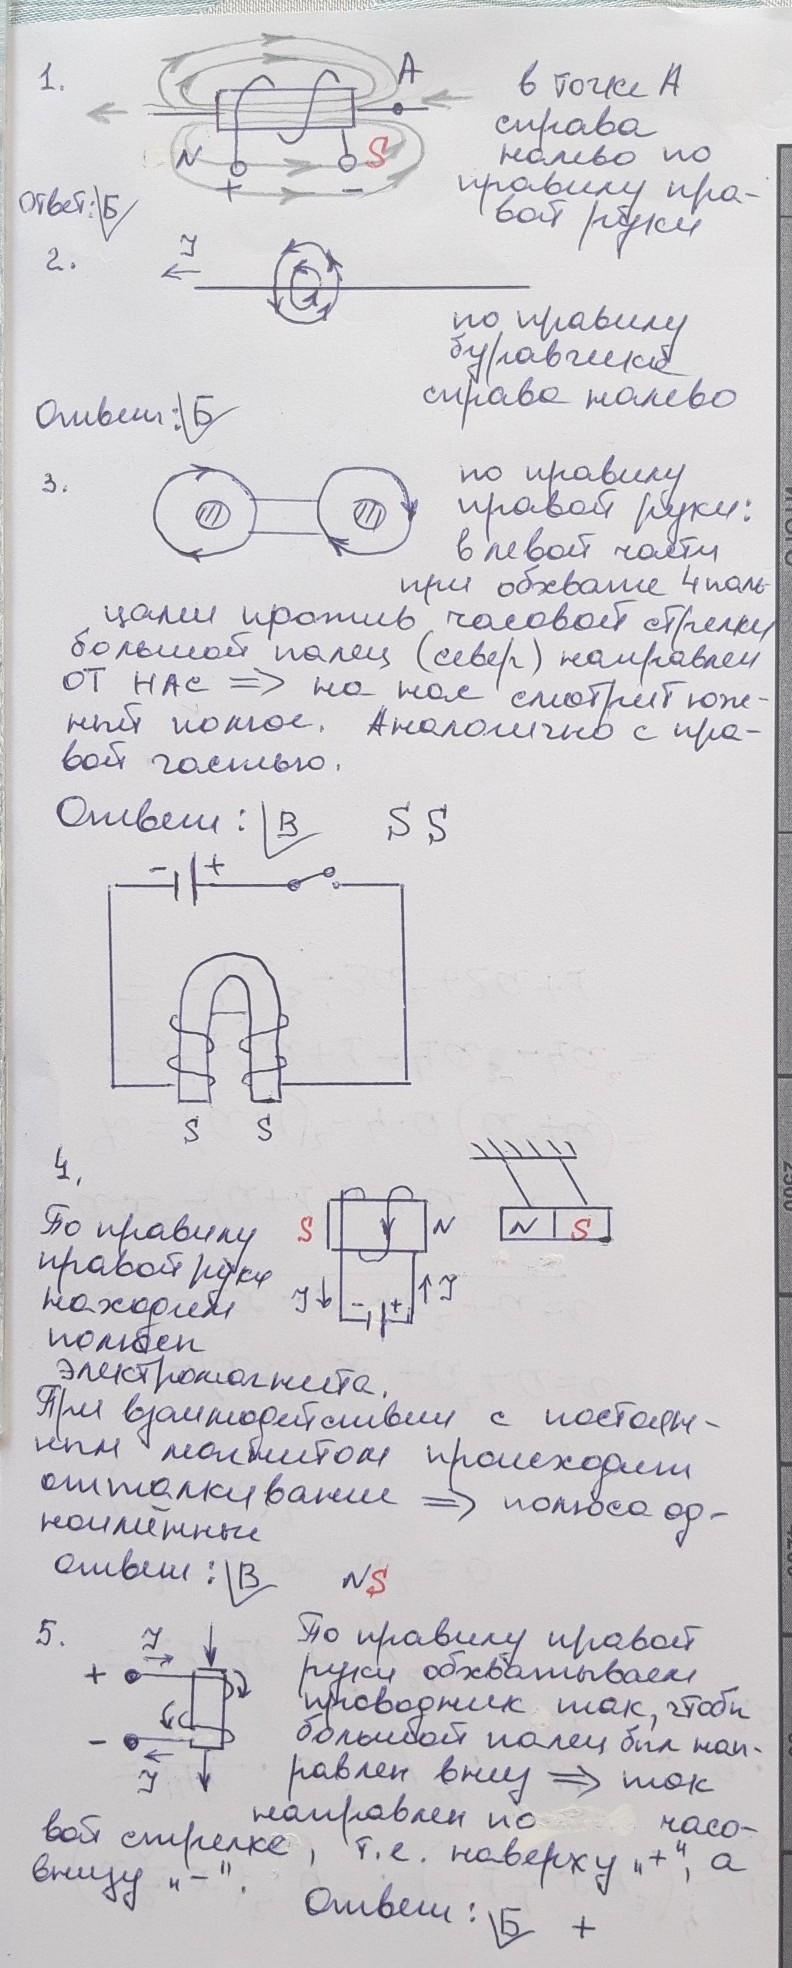 1.
A
в точке А
справа
налево по
правилу пра-
вой руки
N
S
+
-
Ответ: Б
2.
I
по правилу
буравчика
справа налево
Ответ: Б
3.
по правилу
правой руки:
в левой части
при обхвате 4 паль-
цами против часовой стрелки
большой палец (север) направлен
ОТ НАС => на нас смотрит юж-
ный полюс. Аналогично с пра-
вой частью.
Ответ: В S S
- +
S S
4.
S N
N S
I - + I
По правилу
правой руки
находим
полюсы
электромагнита.
При взаимодействии с постоян-
ным магнитом происходит
отталкивание => полюса од-
ноимённые
Ответ: В NS
5.
I
+
-
I
По правилу правой
руки обхватываем
проводник так, чтобы
большой палец был нап-
равлен вниз => ток
направлен по часо-
вой стрелке, т.е. наверху "+", а
внизу "-".
Ответ: Б +